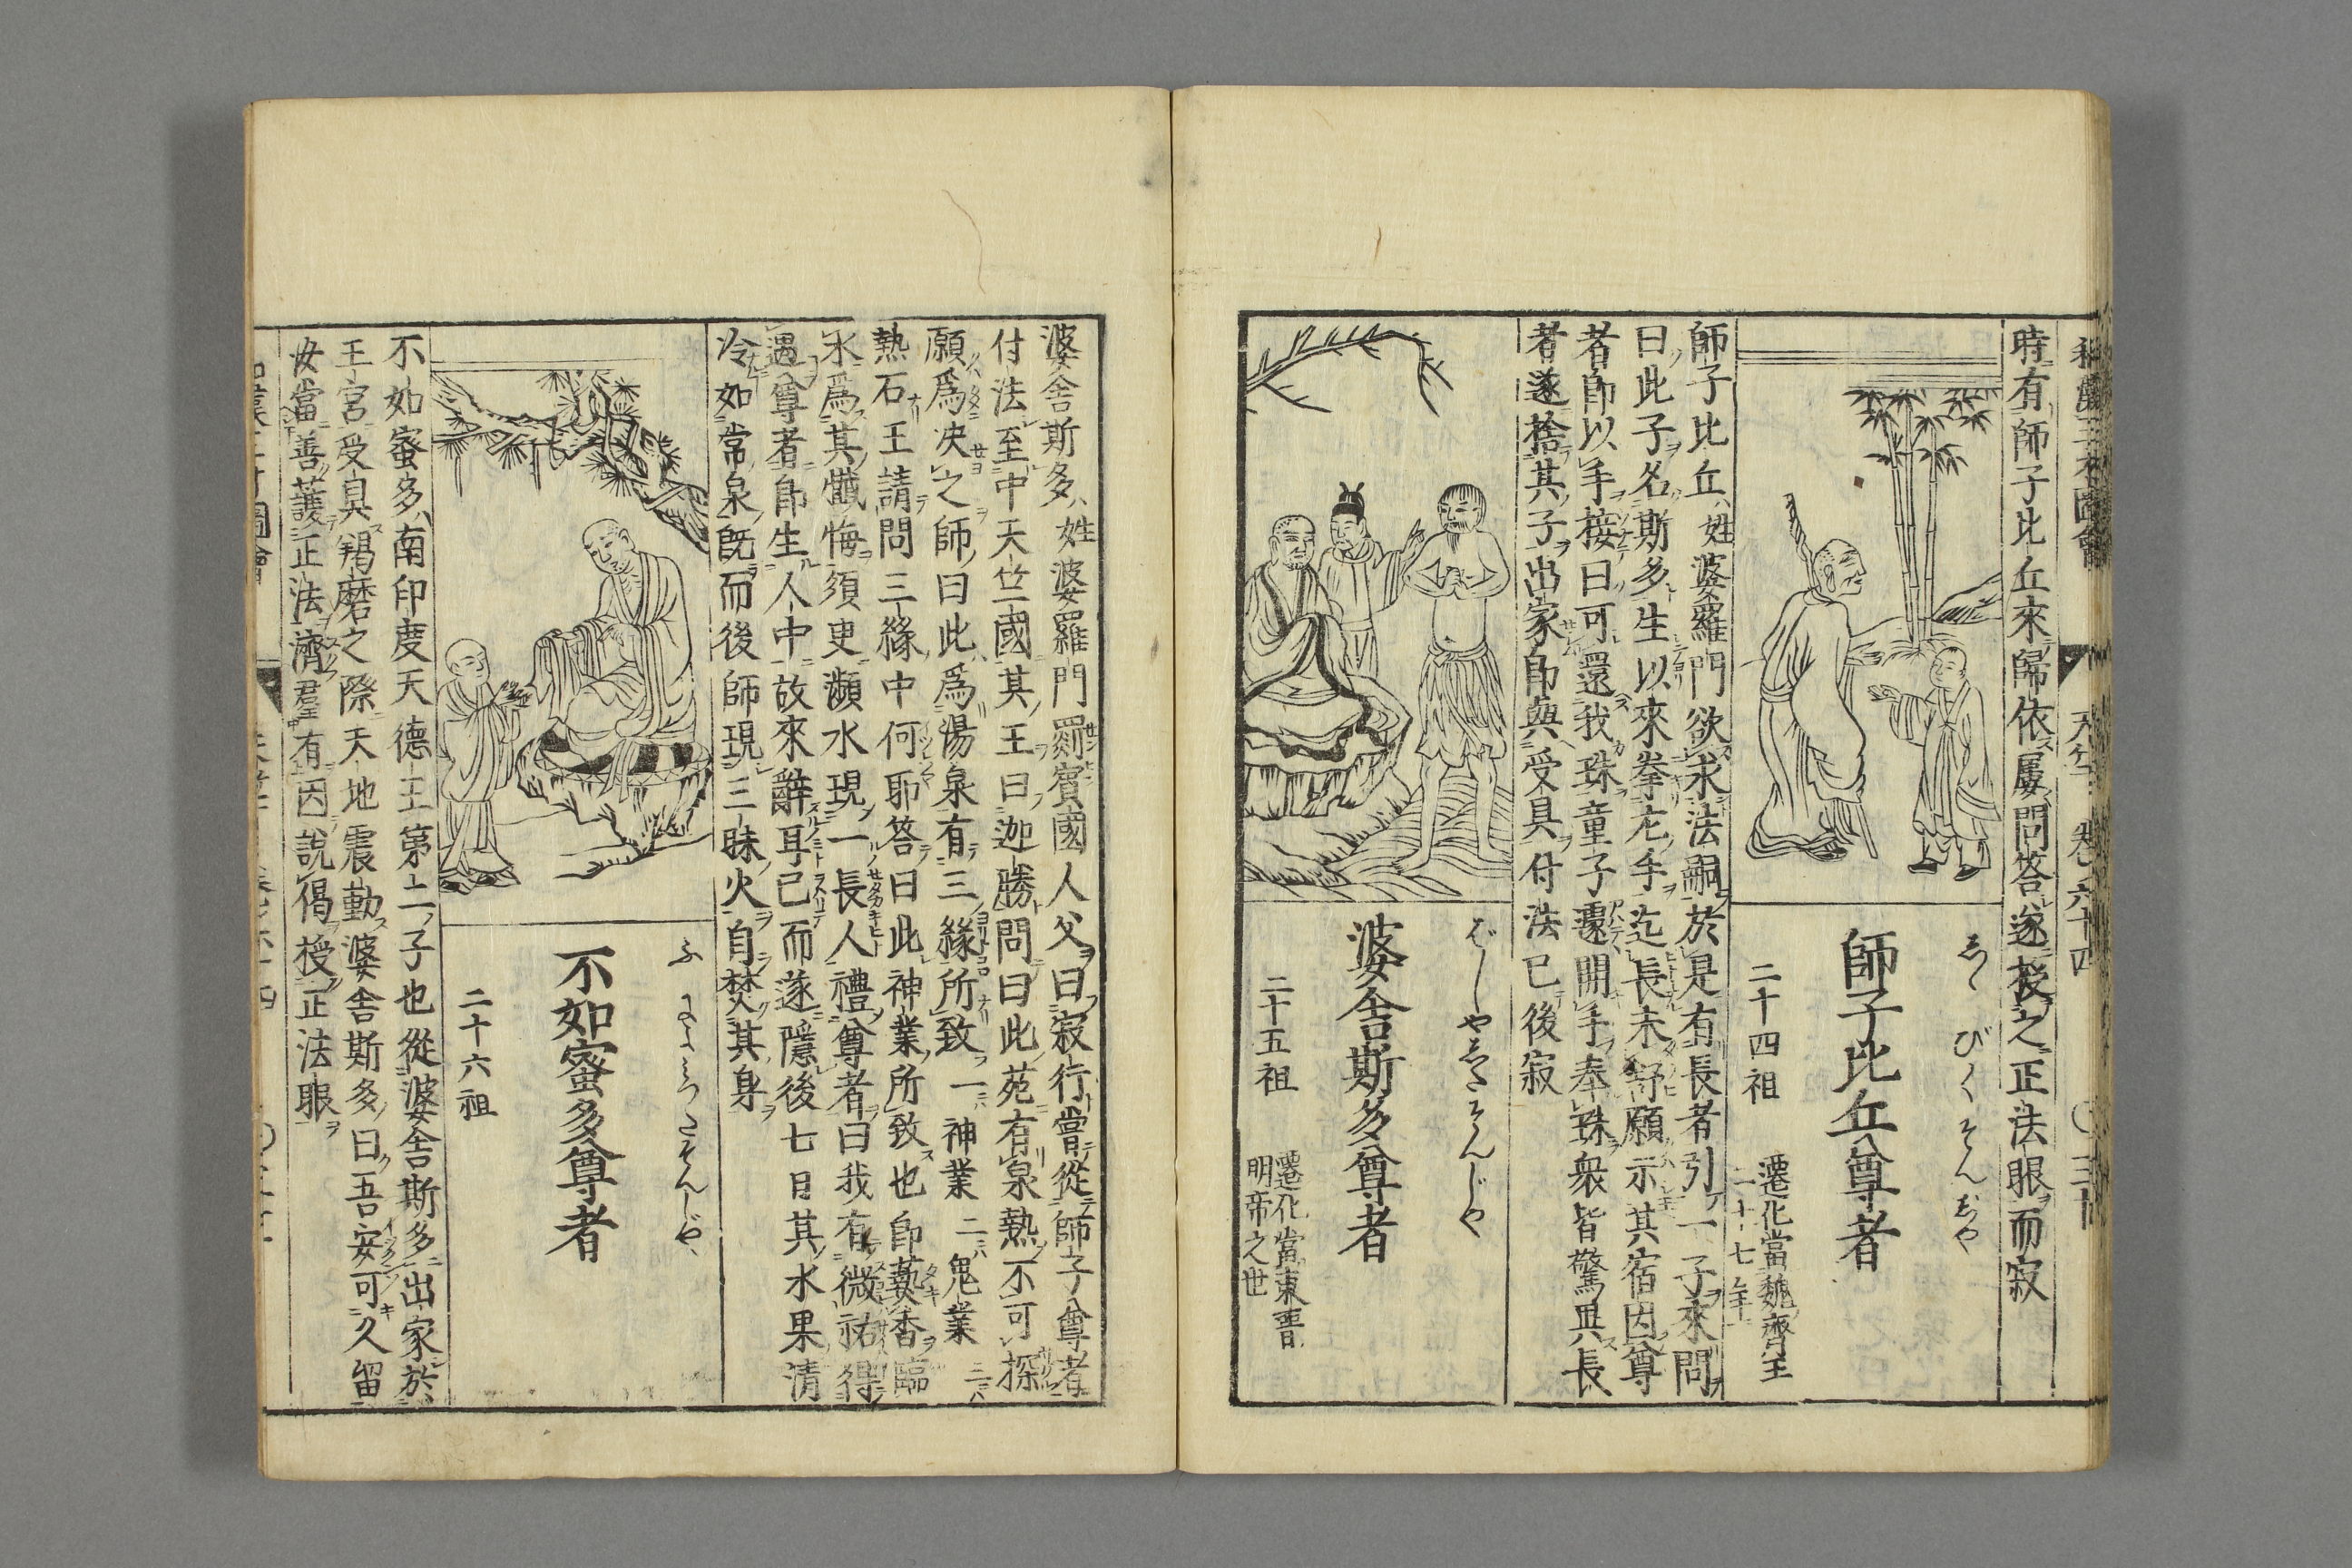 和漢三才圖會
天竺 卷六十四
時有師子比丘來歸依屢問答遂授之正法眼而寂
しゝ びく そんじや
師子比丘尊者
二十四祖
遷化當魏齊王
二十七年
師子比丘姓婆羅門欲求法嗣於是有長者引一子來問
曰此子名斯多生以來拳左手迄長未舒願示其宿因尊
者即以手接曰可還我珠童子遽開手奉珠衆皆驚異長
者遂捨其子出家即與受具付法已後寂
ばしやしたそんじや
婆舎斯多尊者
二十五祖
遷化當東晋
明帝之世
婆舎斯多姓婆羅門罽賓國人父曰寂行嘗從師子尊者
付法至中天竺國其王曰迦勝問曰此苑有泉熱不可探
願爲决之師曰此爲湯泉有三緣所致一神業二鬼業三
熱石王請問三緣中何耶答曰此神業所致也即爇香臨
水爲其懺悔須臾瀕水現一長人禮尊者曰我有微祐得
遇尊者即生人中故來辭耳已而遂隱後七日其水果清
冷如常泉既而後師現三昧火自焚其身
ふによみつたそんじや
不如蜜多尊者
二十六祖
不如蜜多南印度天德王第二子也從婆舎斯多出家於
王宮受具羯磨之際天地震動婆舎斯多曰吾安可久留
汝當善護正法濟羣有因說偈授正法眼